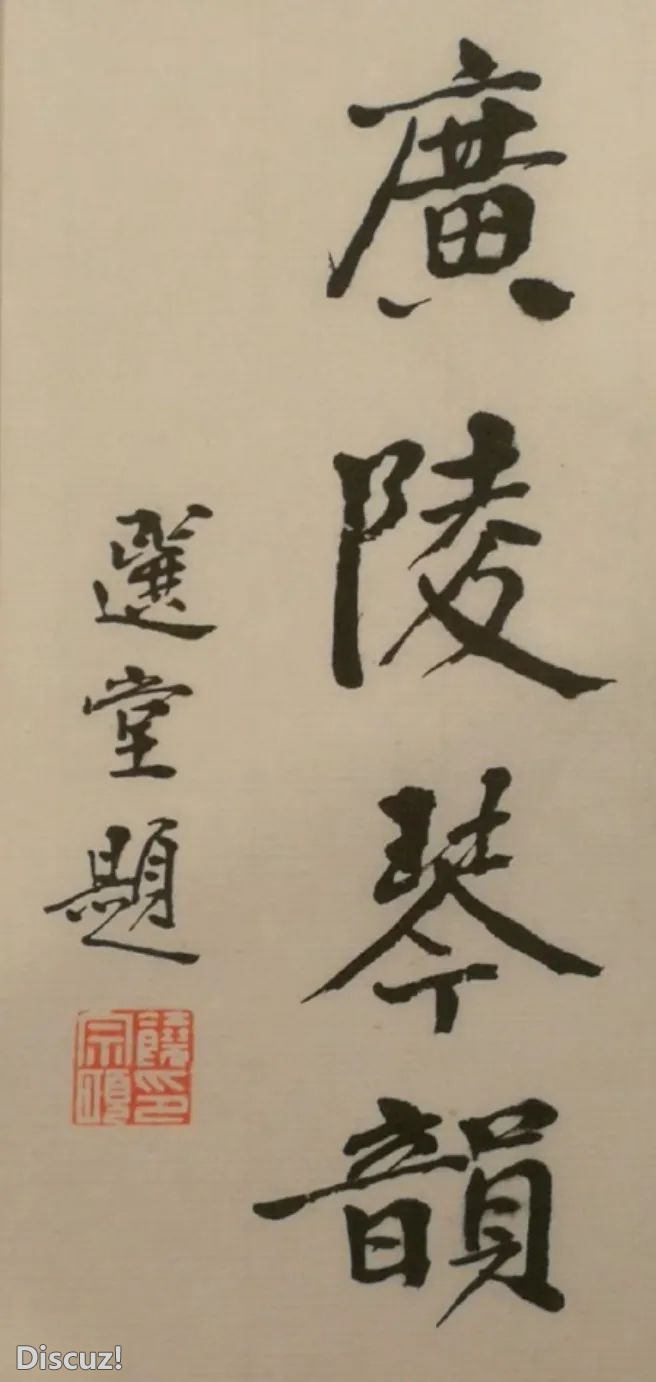 廣陵琴韻
選堂題
饒宗頤印
Discuz!